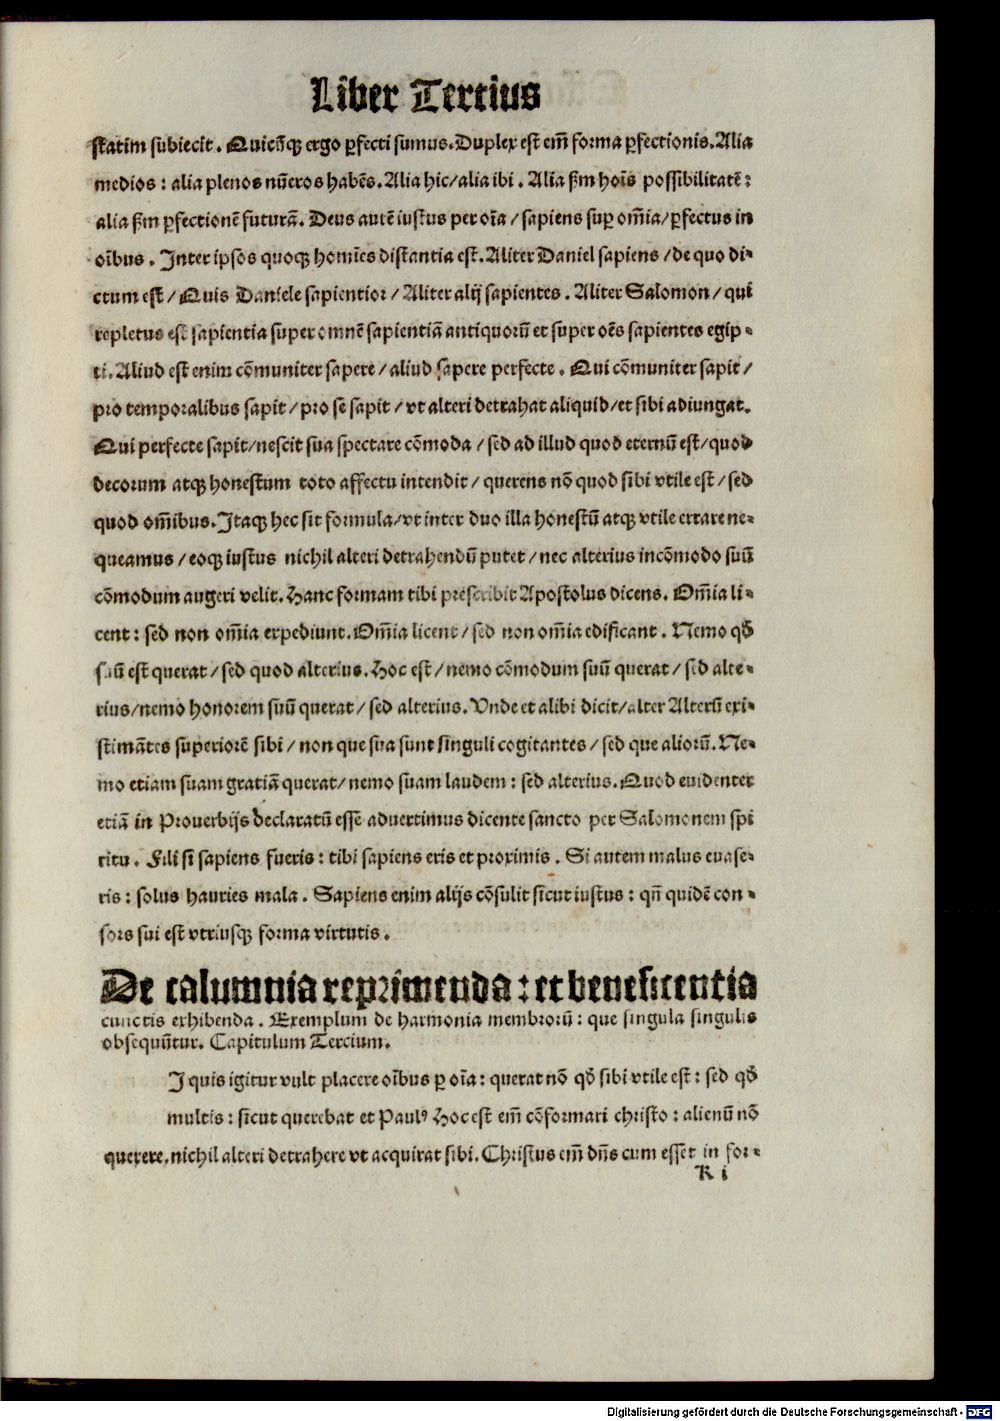 Liber Tertius
statim subiecit. Quicūqꝫ ergo ꝑfecti sumus. Duplex est em̄ forma ꝑfectionis. Alia
medios: alia plenos nūeros habēs. Alia hic/alia ibi. Alia ẜm hoīs possibilitatē:
alia ẜm ꝑfectionē futurā. Deus autē iustus per oīa/sapiens suꝑ om̄ia/ꝑfectus in
oībus. Inter ipsos quoqꝫ homīes distantia est. Aliter Daniel sapiens/de quo di-
ctum est/Quis Daniele sapientior/Aliter alij sapientes. Aliter Salomon/qui
repletus est sapientia super omnē sapientiā antiquorū et super oēs sapientes egip-
ti. Aliud est enim cōmuniter sapere/aliud sapere perfecte. Qui cōmuniter sapit/
pro temporalibus sapit/pro se sapit/vt alteri detrahat aliquid/et sibi adiungat.
Qui perfecte sapit/nescit sua spectare cōmoda/sed ad illud quod eternū est/quod
decorum atqꝫ honestum toto affectu intendit/querens nō quod sibi vtile est/sed
quod om̄ibus. Itaqꝫ hec sit formula/vt inter duo illa honestū atqꝫ vtile errare ne-
queamus/eoqꝫ iustus nichil alteri detrahendū putet/nec alterius incōmodo suū
cōmodum augeri velit. Hanc formam tibi prescribit Apostolus dicens. Om̄ia li-
cent: sed non om̄ia expediunt. Om̄ia licent/sed non om̄ia edificant. Nemo qđ
suū est querat/sed quod alterius. Hoc est/nemo cōmodum suū querat/sed alte-
rius/nemo honorem suū querat/sed alterius. Vnde et alibi dicit/alter Alterū exi-
stimātes superiorē sibi/non que sua sunt singuli cogitantes/sed que aliorū. Ne-
mo etiam suam gratiā querat/nemo suam laudem: sed alterius. Quod euidenter
etiā in Prouerbijs declaratū esse aduertimus dicente sancto per Salomonem spi
ritu. Fili si sapiens fueris: tibi sapiens eris et proximis. Si autem malus euase-
ris: solus hauries mala. Sapiens enim alijs cōsulit sicut iustus: qn̄ quidē con-
sors sui est vtriusqꝫ forma virtutis.
De calumnia reprimenda: et beneficentia
cunctis exhibenda. Exemplum de harmonia membrorū: que singula singulis
obsequūtur. Capitulum Tercium.
I quis igitur vult placere oībus ꝑ oīa: querat nō qđ sibi vtile est: sed qđ
multis: sicut querebat et Paulꝰ Hoc est em̄ cōformari christo: alienū nō
querere. nichil alteri detrahere vt acquirat sibi. Christus em̄ dn̄s cum esset in for-
K i
Digitalisierung gefördert durch die Deutsche Forschungsgemeinschaft - DFG